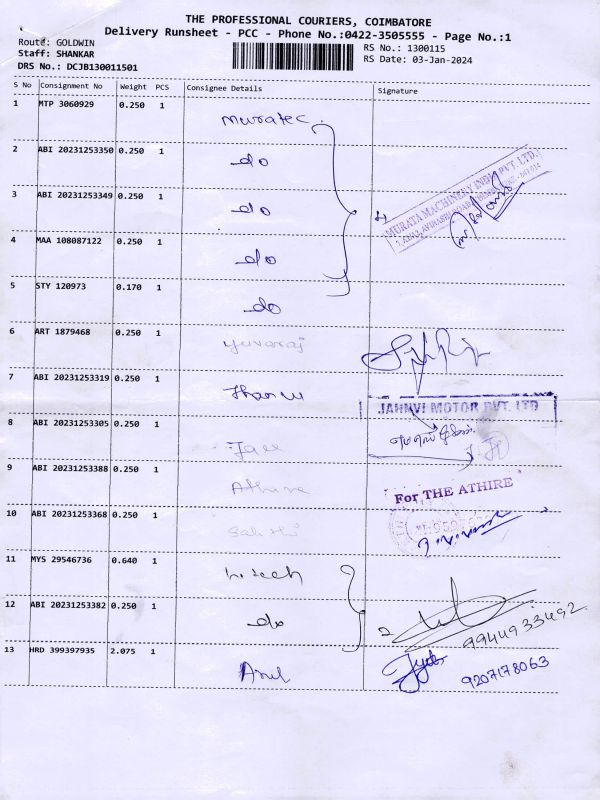 THE PROFESSIONAL COURIERS, COIMBATORE
Delivery Runsheet - PCC - Phone No.:0422-3505555 - Page No.:1
Route: GOLDWIN
RS No.: 1300115
Staff: SHANKAR
RS Date: 03-Jan-2024
DRS No.: DCJB130011501
S No Consignment No Weight PCS Consignee Details Signature
1 MTP 3060929 0.250 1 Muratec
2 ABI 20231253350 0.250 1 do
3 ABI 20231253349 0.250 1 do
MURATA MACHINERY INDIA PVT. LTD.
4 MAA 108087122 0.250 1 do
5 STY 120973 0.170 1 do
6 ART 1879468 0.250 1 Yuvaraj
7 ABI 20231253319 0.250 1
JAHNVI MOTOR PVT. LTD
8 ABI 20231253305 0.250 1
9 ABI 20231253388 0.250 1 Athire
For THE ATHIRE
10 ABI 20231253368 0.250 1
11 MYS 29546736 0.640 1
12 ABI 20231253382 0.250 1 do
9944933492
13 HRD 399397935 2.075 1 Arul
9207178063